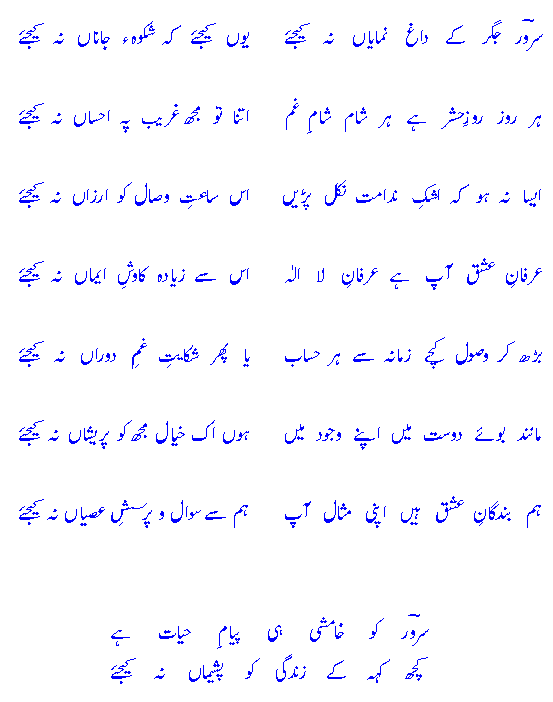 سرورؔ جگر کے داغ نمایاں نہ کیجئے یوں کیجئے کہ شکوہء جاناں نہ کیجئے
ہر روز روزِحشر ہے ہر شام شامِ غم اتنا تو مجھ غریب پہ احساں نہ کیجئے
ایسا نہ ہو کہ اشکِ ندامت نکل پڑیں اس ساعتِ وصال کو ارزاں نہ کیجئے
عرفانِ عشق آپ ہے عرفانِ لا الٰہ اس سے زیادہ کاوشِ ایماں نہ کیجئے
بڑھ کر وصول کیجے زمانہ سے ہر حساب یا پھر شکایتِ غمِ دوراں نہ کیجئے
مانند بوئے دوست میں اپنے وجود میں ہوں اک خیال مجھ کو پریشاں نہ کیجئے
ہم بندگانِ عشق ہیں اپنی مثال آپ ہم سے سوال و پرسشِ عصیاں نہ کیجئے
سرورؔ کو خامشی ہی پیامِ حیات ہے
کچھ کہہ کے زندگی کو پشیماں نہ کیجئے